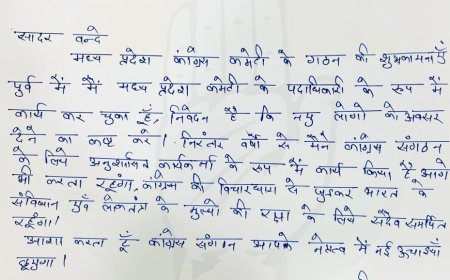 सादर वन्दे
मध्य प्रदेश कांग्रेस कमेटी के गठन की शुभकामनाएँ
पूर्व में मैं मध्य प्रदेश कमेटी के पदाधिकारी के रूप में
कार्य कर चुका हूँ, निवेदन है कि नए लोगों को अवसर
देने का कष्ट करे। निरंतर वर्षों से मैंने कांग्रेस संगठन
के लिये अनुशासित कार्यकर्ता के रूप में कार्य किया है आगे
भी करता रहूंगा, कांग्रेस की विचारधारा से जुड़कर भारत के
संविधान एवं लोकतंत्र के मूल्यो की रक्षा के लिये सदैव समर्पित
रहूंगा।
आशा करता हूँ कांग्रेस संगठन आपके नेतृत्व में नई ऊचाईयाँ
छुएगा।